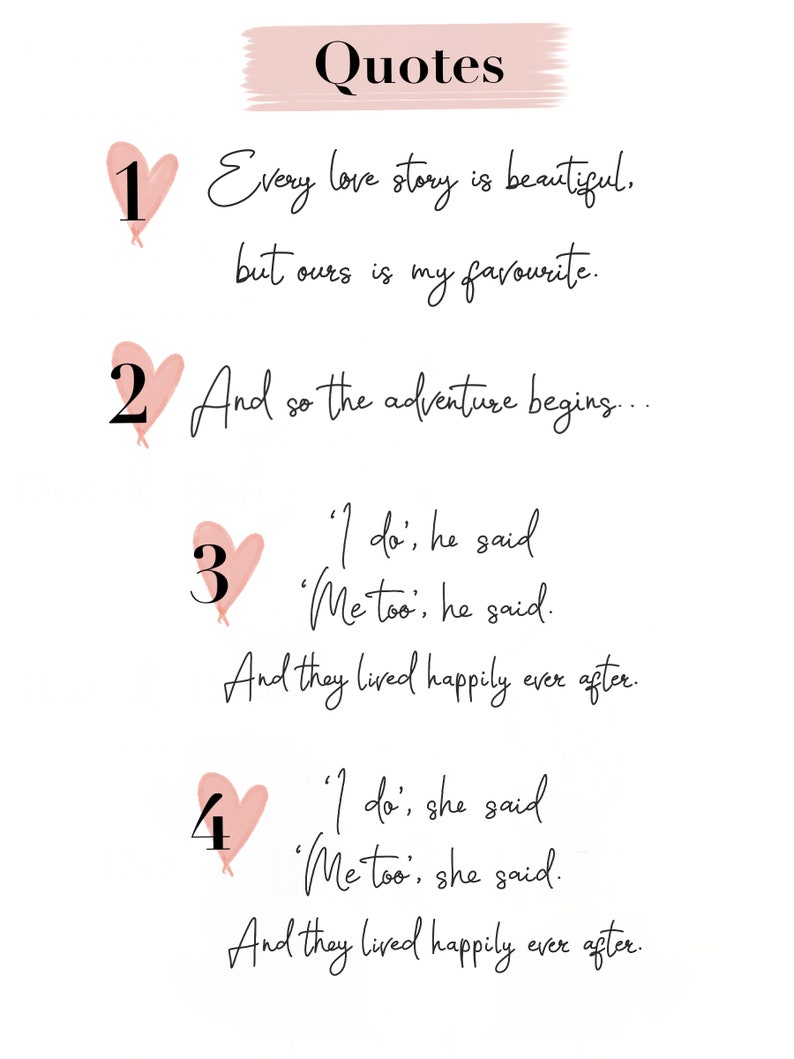 Quotes
1
Every love story is beautiful,
but ours is my favourite.
2
And so the adventure begins...
3
‘I do’, he said
‘Me too’, he said.
And they lived happily ever after.
4
‘I do’, she said
‘Me too’, she said.
And they lived happily ever after.